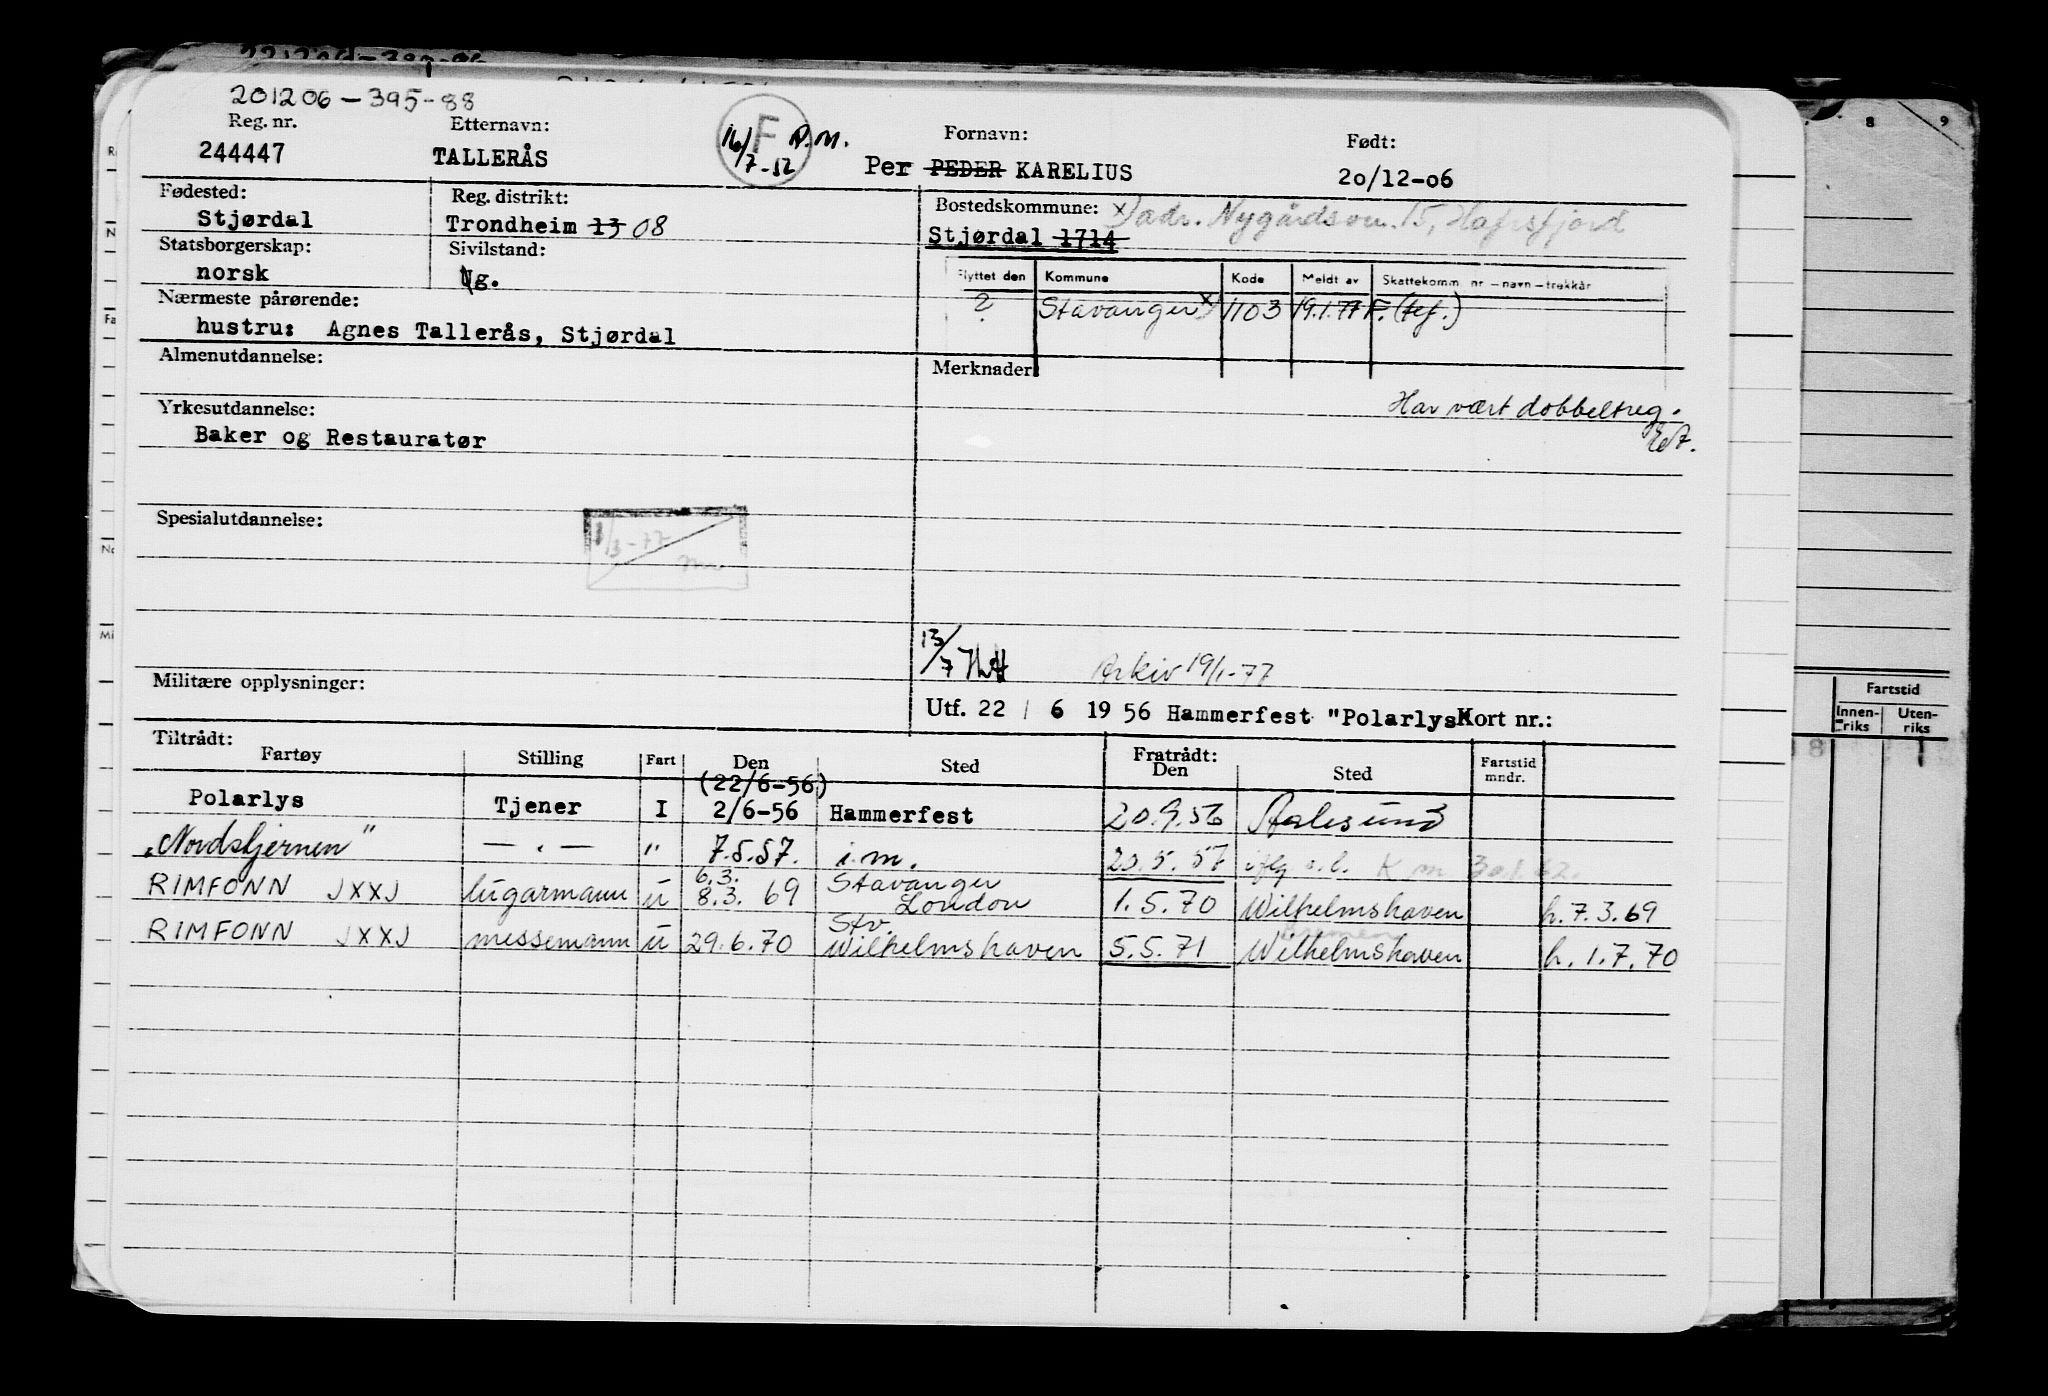 201206-395-88
Reg. nr. Etternavn: Fornavn: Født:
244447 TALLERÅS 16/7-52 F R.M. Per PEDER KARELIUS 20/12-06
Fødested: Reg. distrikt: Bostedskommune: x) adr. Nygårdsvn. 15, Hafrsfjord
Stjørdal Trondheim 13 08 Stjørdal 1714
Statsborgerskap: Sivilstand:
norsk g.
Flyttet den Kommune Kode Meldt av Skattekomm nr – navn – trekkår
? Stavanger x) 1103 19.1.77 F. (tef.)
Nærmeste pårørende:
hustru: Agnes Tallerås, Stjørdal
Almenutdannelse: Merknader
Har vært dobbeltreg.
Yrkesutdannelse:
Baker og Restauratør
Spesialutdannelse:
/3-77
13/7 Arkiv 19/1-77
Militære opplysninger:
Utf. 22 / 6 19 56 Hammerfest "Polarlys" Kort nr.:
Tiltrådt: Fratrådt:
Fartøy Stilling Fart Den Sted Den Sted Fartstid mndr.
(22/6-56)
Polarlys Tjener I 2/6-56 Hammerfest 20.9.56 Aalesund
"Nordstjernen" — " — " 7.5.57. i.m. 20.5.57
6.3. Stavanger
RIMFONN JXXJ lugarmann u 8.3. 69 London 1.5.70 Wilhelmshaven h. 7.3.69
Stv. Bremen
RIMFONN JXXJ messemann u 29.6.70 Wilhelmshaven 5.5.71 Wilhelmshaven h. 1.7.70
8 9
Fartstid
Innen-riks Uten-riks